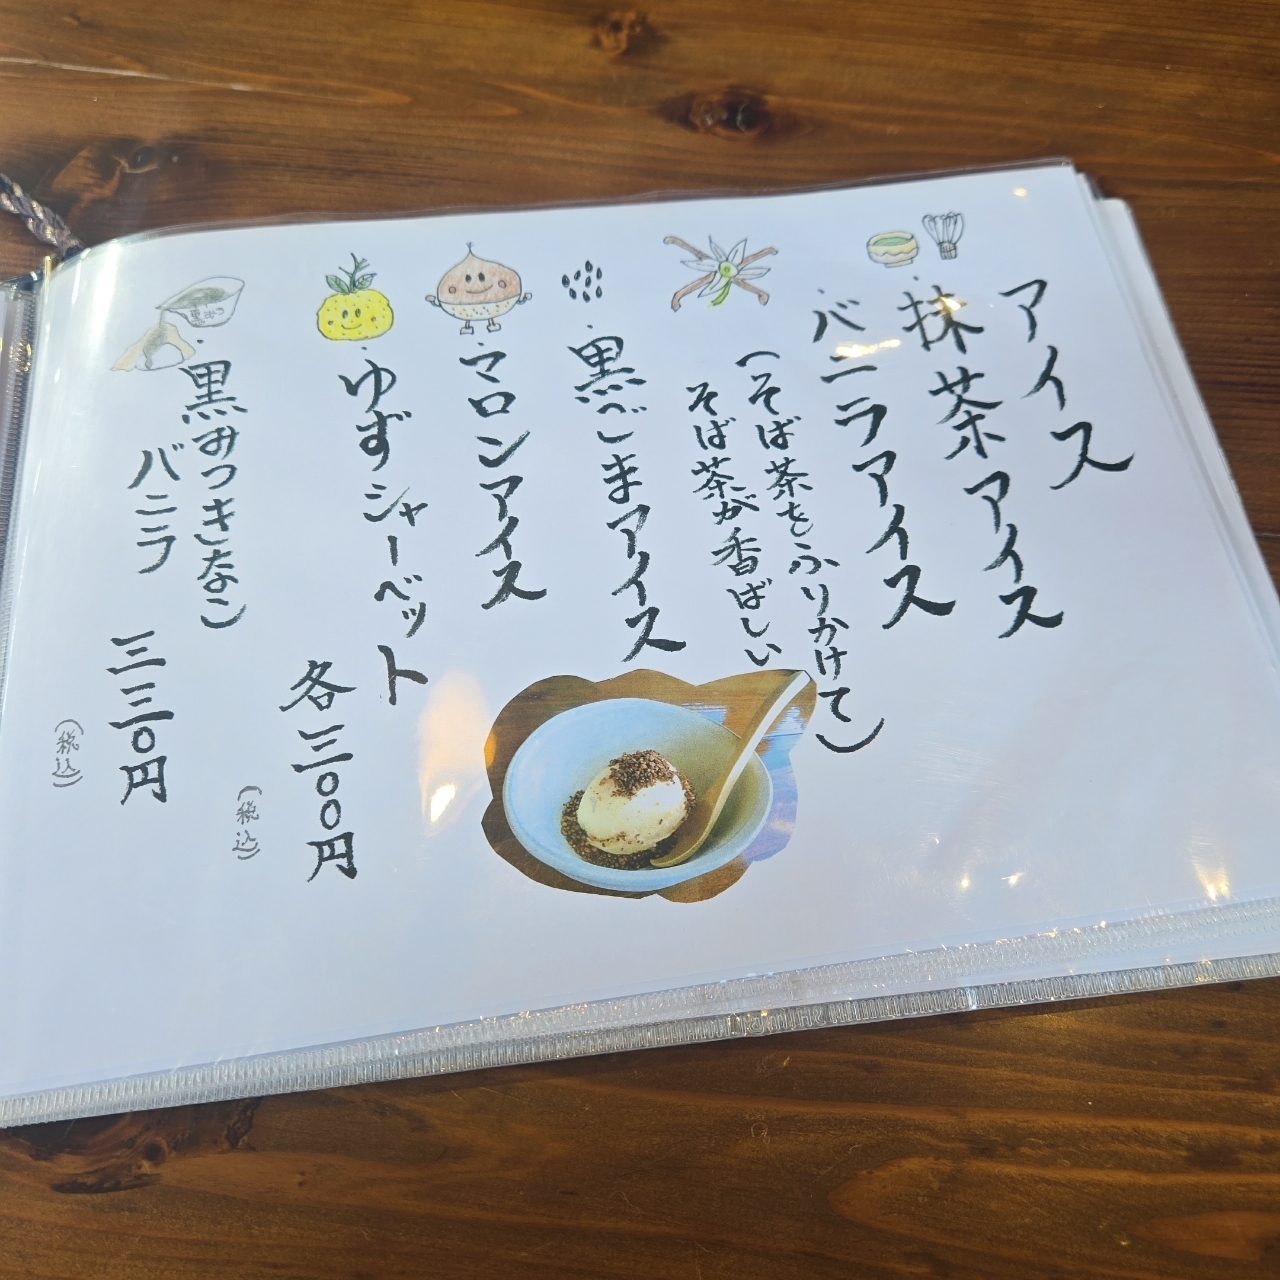 アイス
・抹茶アイス
・バニラアイス
(そば茶をふりかけて)
そば茶が香ばしい
・黒ごまアイス
・マロンアイス
・ゆずシャーベット
各三〇〇円
(税込)
・黒みつきなこ
バニラ
三三〇円
(税込)